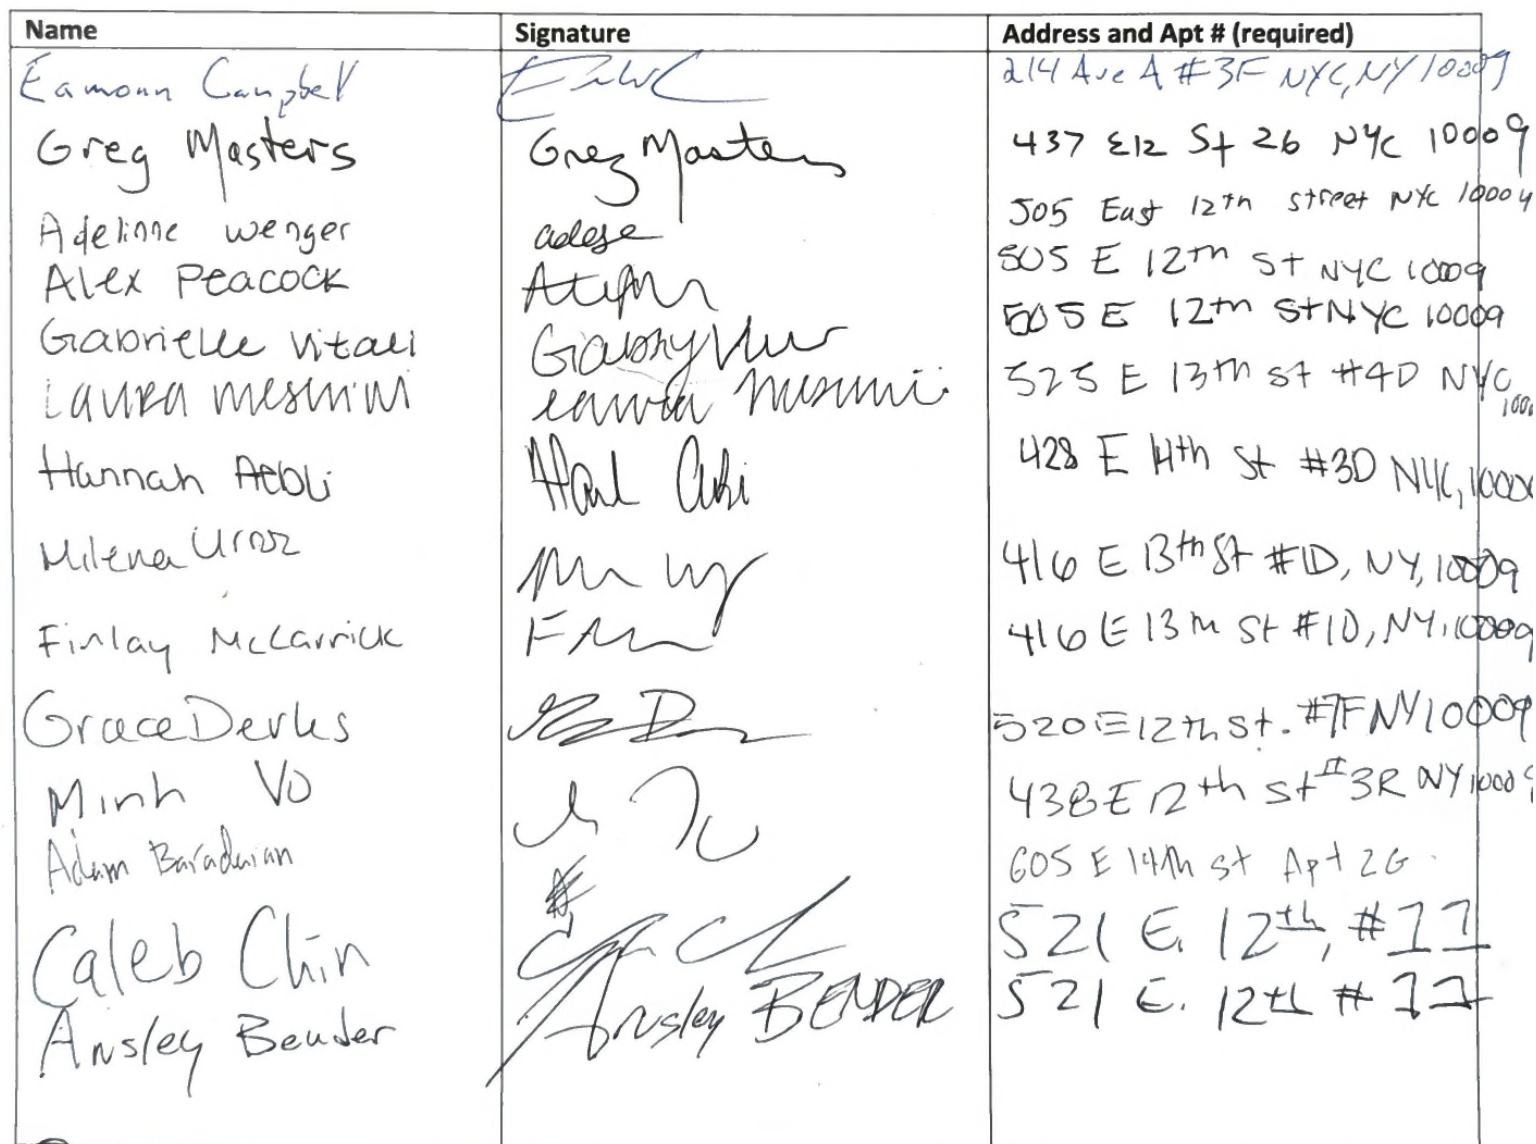 Name Signature Address and Apt # (required)
Eamonn Campbell 214 Ave A #3F NYC, NY 10009
Greg Masters Greg Masters 437 E12 St 26 NYC 10009
Adelinne wenger 505 East 12th street NYC 10009
Alex Peacock 505 E 12th St NYC 10009
Gabrielle Vitali 505 E 12th St NYC 10009
Laura mesnini Laura 525 E 13th st #4D NYC
Hannah Aebli 428 E 14th St #3D NYC,
Milena 416 E 13th St #1D, NY, 10009
Finlay McCarrick 416 E 13th St #1D, NY, 10009
Grace Derks 520 E 12th St. #7F NY 10009
Minh Vo 438 E 12th St #3R NY 10009
Adam 605 E 14th St Apt 2G
Caleb Chin 521 E. 12th, #11
Ansley Bender Ansley BENDER 521 E. 12th #11